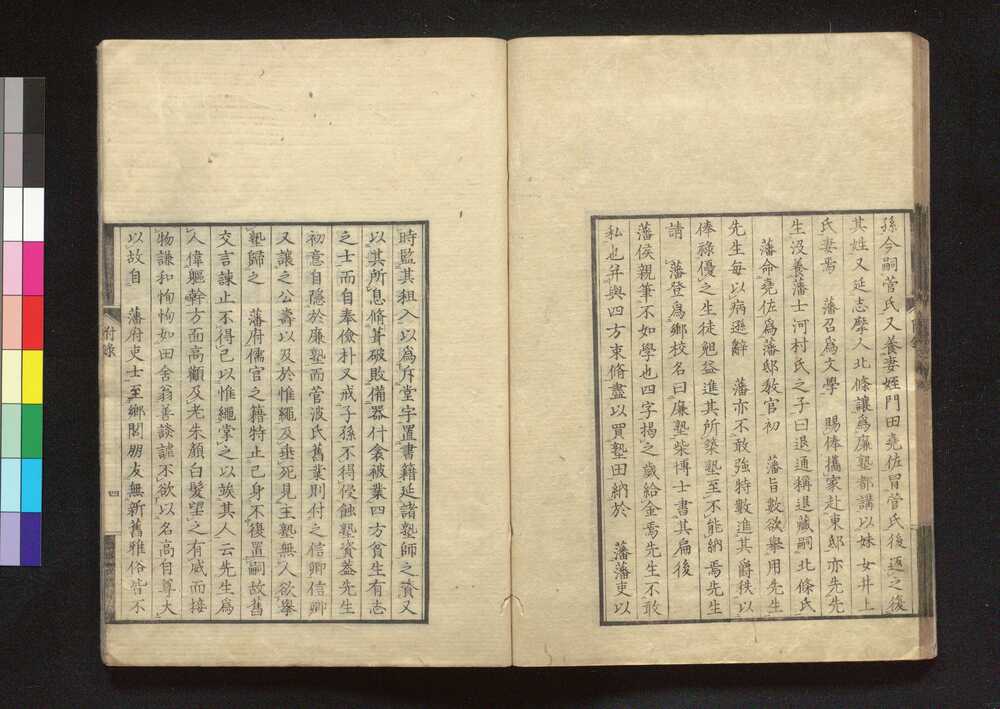 孫令嗣菅氏又養妻姪門田堯佐冒菅氏後返之後
其姓又延志摩人北條讓爲廉塾都講以妹女井上
氏妻焉　藩召爲文學　賜俸攜家赴東邸亦先先
生沒養藩士河村氏之子曰退通稱退藏嗣北條氏
藩命堯佐爲藩邸敎官初　藩旨數欲擧用先生
先生每以病遜辭　藩亦不敢強特數進其爵秩以
俸祿優之生徒魁益進其所築塾至不能納焉先生
請　藩登爲鄕校名曰廉塾柴博士書其扁後
藩侯親筆不如學也四字揭之歲給金焉先生不敢
私也并與四方束脩盡以買塾田納於　藩藩吏以
時監其租入以爲斥堂宇置書籍延諸塾師之資又
以其所息脩葺破敗備器什衾被業四方貧生有志
之士而自奉儉朴又戒子孫不得侵蝕塾資葢先生
初意自隱於廉塾而菅波氏舊業則付之信卿信卿
又讓之公壽以及於惟繩及垂死見主塾無人欲擧
塾歸之　藩府儒官之籍特止己身不復置嗣故舊
交言諫止不得已以惟繩掌之以竢其人云先生爲
人偉軀幹方面高顴及老朱顏白髮望之有威而接
物謙和恂恂如田舍翁善談謔不欲以名高自尊大
以故自　藩府吏士至鄕閭朋友無新舊雅俗皆不
附錄
四